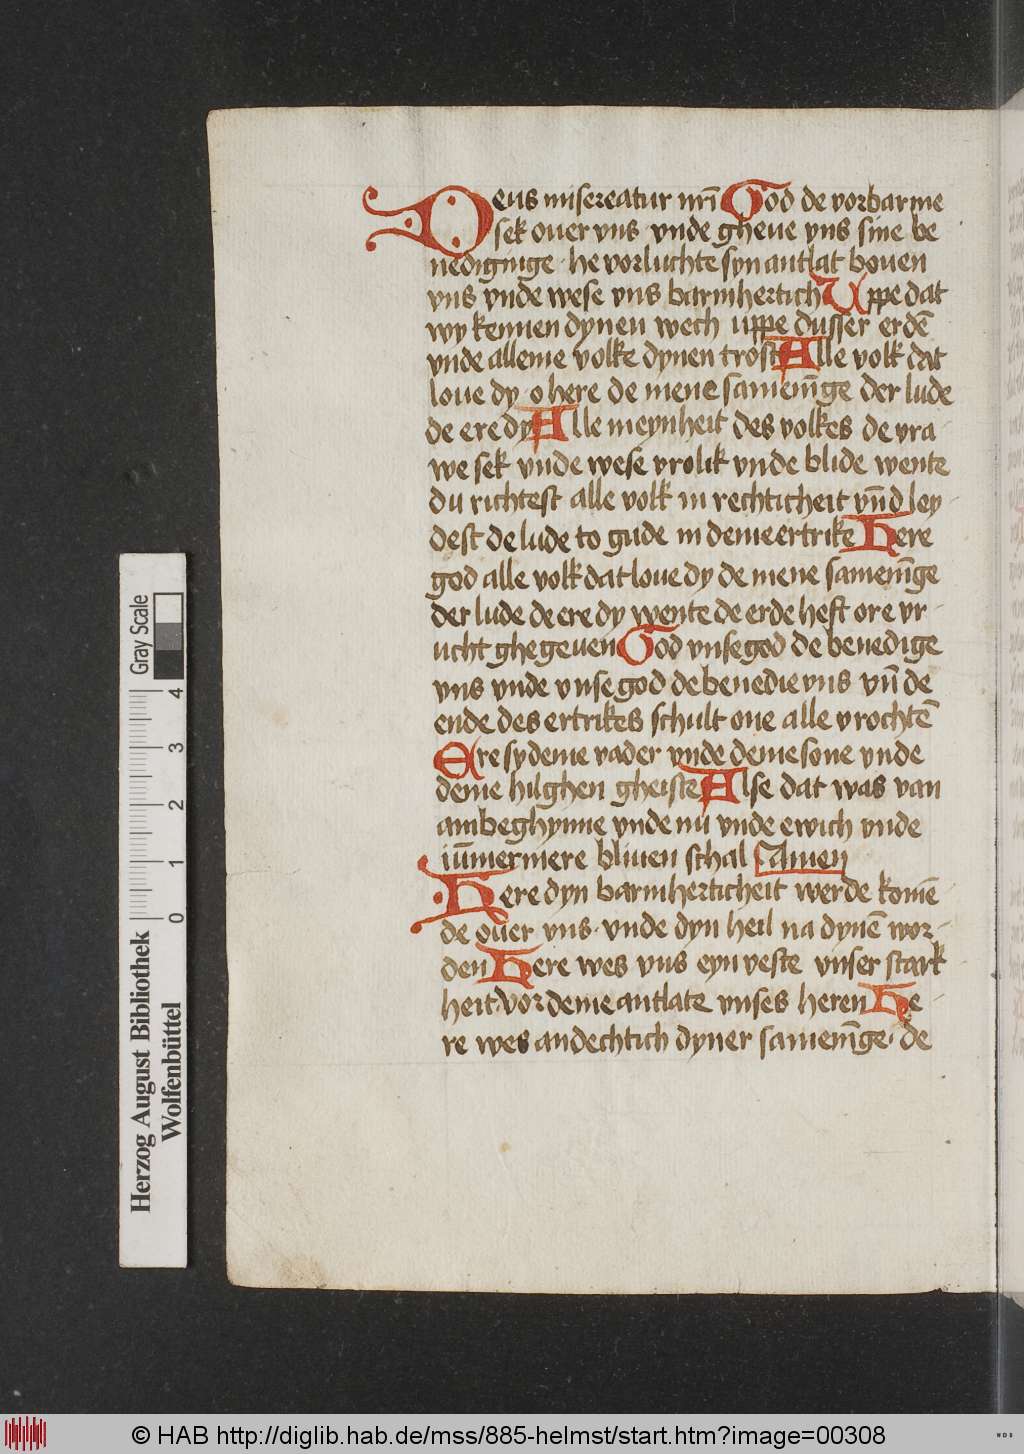 Deus misereatur nr̄i God de vorbarme
sek ouer vns vnde gheue vns sine be
nedignige · he vorluchte syn antlat bouen
vns vnde wese vns barmhertich Uppe dat
wy kennen dynen wech uppe dusser erdē
vnde alleme volke dynen trost Alle volk dat
loue dy o here de mene samenīge der lude
de ere dy Alle meynheit des volkes de vra
we sek vnde wese vrolik vnde blide wente
du richtest alle volk in rechticheit vn̄d ley
dest de lude to gude in deme ertrike Here
god alle volk dat loue dy de mene samenīge
der lude de ere dy wente de erde heft ore vr-
ucht ghegeuen God vnse god de benedige
vns vnde vnse god de benedie vns vn̄ de
ende des ertrikes schult one alle vrochtē
Ere sy deme vader vnde deme sone vnde
deme hilghen gheiste Alse dat was van
ambeghynne vnde nu vnde ewich vnde
iūmermere bliuen schal Amen
Here dyn barmherticheit werde komē-
de ouer vns · vnde dyn heil na dynē wor-
den Here wes vns eyn veste vnser stark
heit · vor deme antlate vnses heren He-
re wes andechtich dyner samenīge · de
Herzog August Bibliothek
Wolfenbüttel
0 1 2 3 4
Gray Scale
© HAB http://diglib.hab.de/mss/885-helmst/start.htm?image=00308
WDB